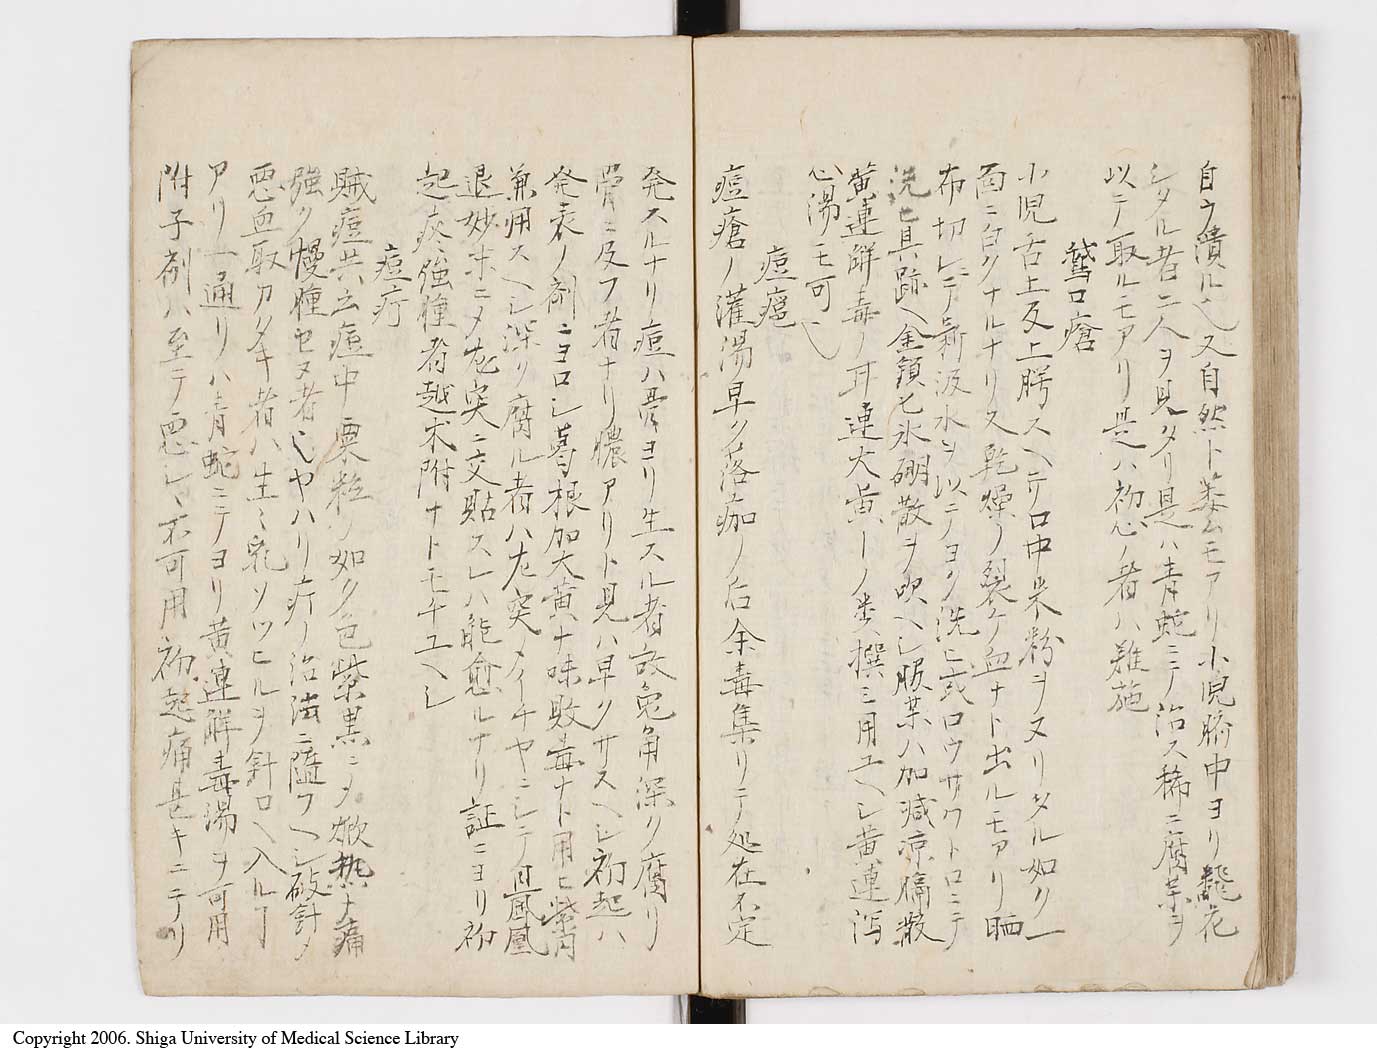 自ラ潰ル也又自然ト萎ムモアリ小児臍中ヨリ飜花
シタル者二人ヲ見タリ是ハ青蛇ニテ治ス稀ニ腐薬ヲ
以テ取ルモアリ是ハ初心ノ者ハ難施
鵞口瘡
小児舌上及上腭スヘテ口中米粉ヲヌリタル如ク一
面ニ白クナルナリ又乾燥ノ裂ケ血ナト出ルモアリ晒
布切レニテ新汲水ヲ以テヨク洗ヒ或ロウサクトロニテ
洗ヒ其跡ヘ金鎖匕氷硼散ヲ吹ヘし服薬ハ加減涼膈散
黄連解毒ノ耳連大黄一ノ類撰ミ用ユヘシ黄連瀉
心湯モ可也
痘疤
痘瘡ノ灌湯早ク落痂ノ后余毒集リテ処在不定
発スルナリ痘ハ骨ヨリ生スル者故兔角深ク腐リ
骨ニ及フ者ナリ膿アリト見ハ早クサスヘシ初起ハ
発表ノ剤ニヨロシ葛根加大黄十味敗毒ナト用ヒ紫円
兼用スヘシ深ク腐ル者ハ尤突メイチヤニシテ直鳳凰
退妙ホニメ尨突ニ交貼スレハ能愈ルナリ証ニヨリ初
起灰ニ強腫者越朮附ナトモチユヘシ
痘疔
賊痘共云痘中粟粒ノ如ク色紫黒ニメ焮熱十痛
強ク慢腫セヌ者也ヤハリ疔ノ治法ニ随フヘシ砭針メ
悪血取カタキ者ハ生ニ乳ソツヒルヲ針口ヘ入ルヿ
アリ一通リハ青蛇ニテヨリ黄連解毒湯ヲ可用
附子剤ハ至テ悪シヽ不可用初起痛甚キニテリ
Copyright 2006. Shiga University of Medical Science Library